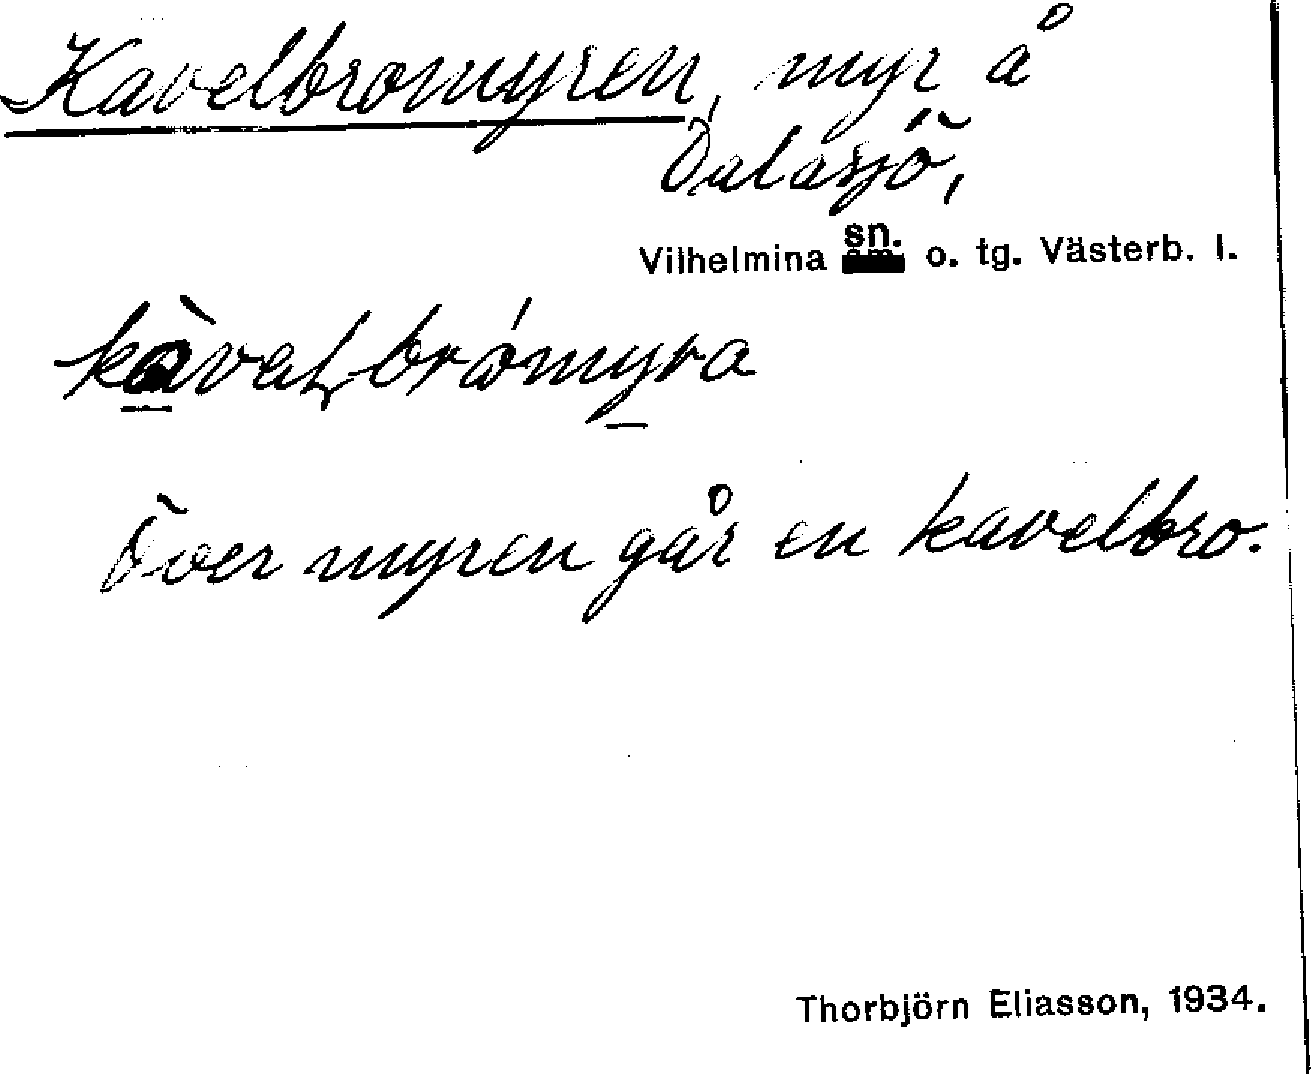 Kavelbromyren, myr å
Dalasjö,
Vilhelmina sn. o. tg. Västerb. l.
kàvaḷbrómyra
Över myren går en kavelbro.
Thorbjörn Eliasson, 1934.